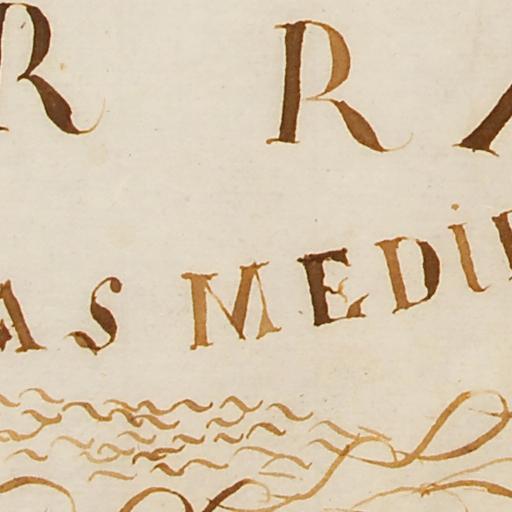 R R
AS MEDi